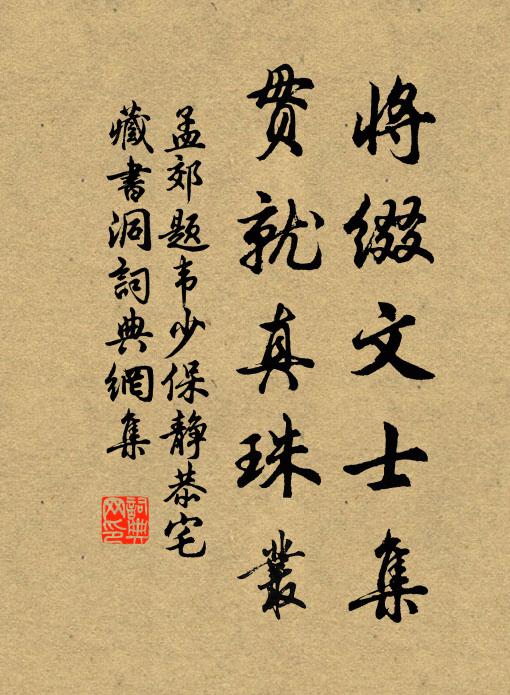 将缀文士集
贯就真珠丛
孟郊题韦少保静恭宅
藏书洞词典网集
詞典
网印